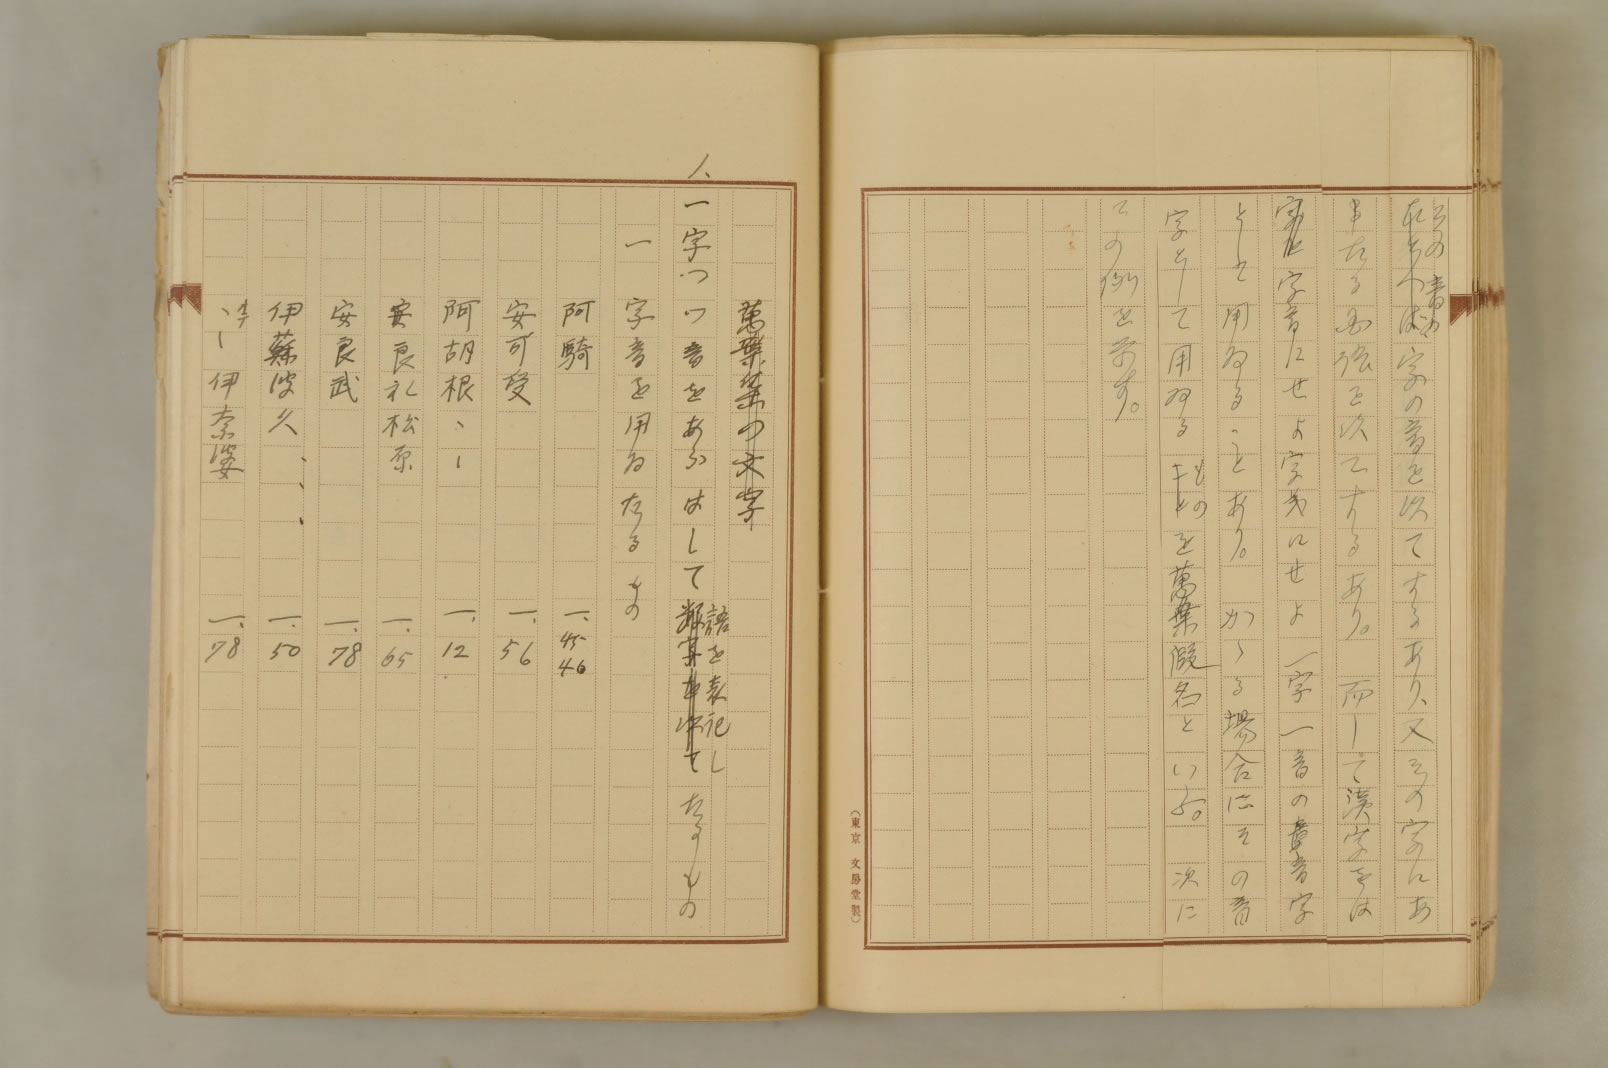 字の音を以てするあり、又その字にあ
を以てするあり。而して漢字をは
字音にせよ字義にせよ一字一音の音字
として用ゐることあり。かゝる場合にその音
字として用ゐるものを萬葉假名といふ。次に
その例を示す。
(東京 文房堂製)
萬葉集の文字
八、一字一つ音をあらはして語を表記したるもの
一 字音を用ゐたるもの
阿騎 一.45 46
安可受 一.56
阿胡根、、 一.12
安良礼松原 一.65
安良武 一.78
伊蘇波久、、、 一.50
伊奈婆 一.78